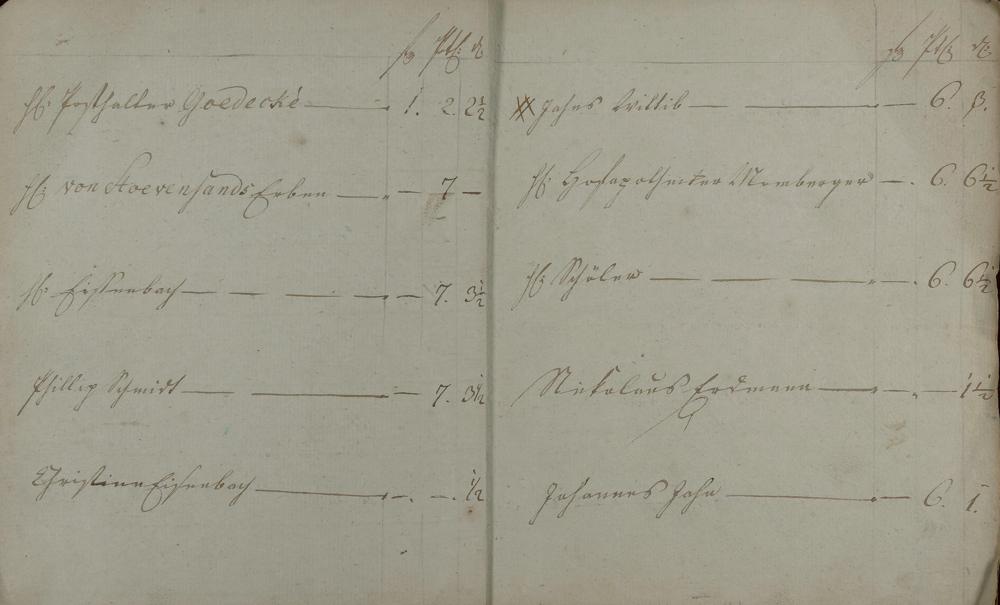 H: Posthalter Goedecké — 1. 2. 2½
H: von Stoevensands Erben — — 7 —
H: Eisenbach — — — — 7. 3½
Phillip Schmidt — — — 7. 3½
Christina Eisenbach — — . — . ½
Jahns Wittib — — — 6. 8.
H: Hofapotheker Momberger — . 6. 6½
H: Schüler — — — — 6. 6½
Nikolaus Erdmann — — . — 1½
Johannes Jahn — — 6. 1.